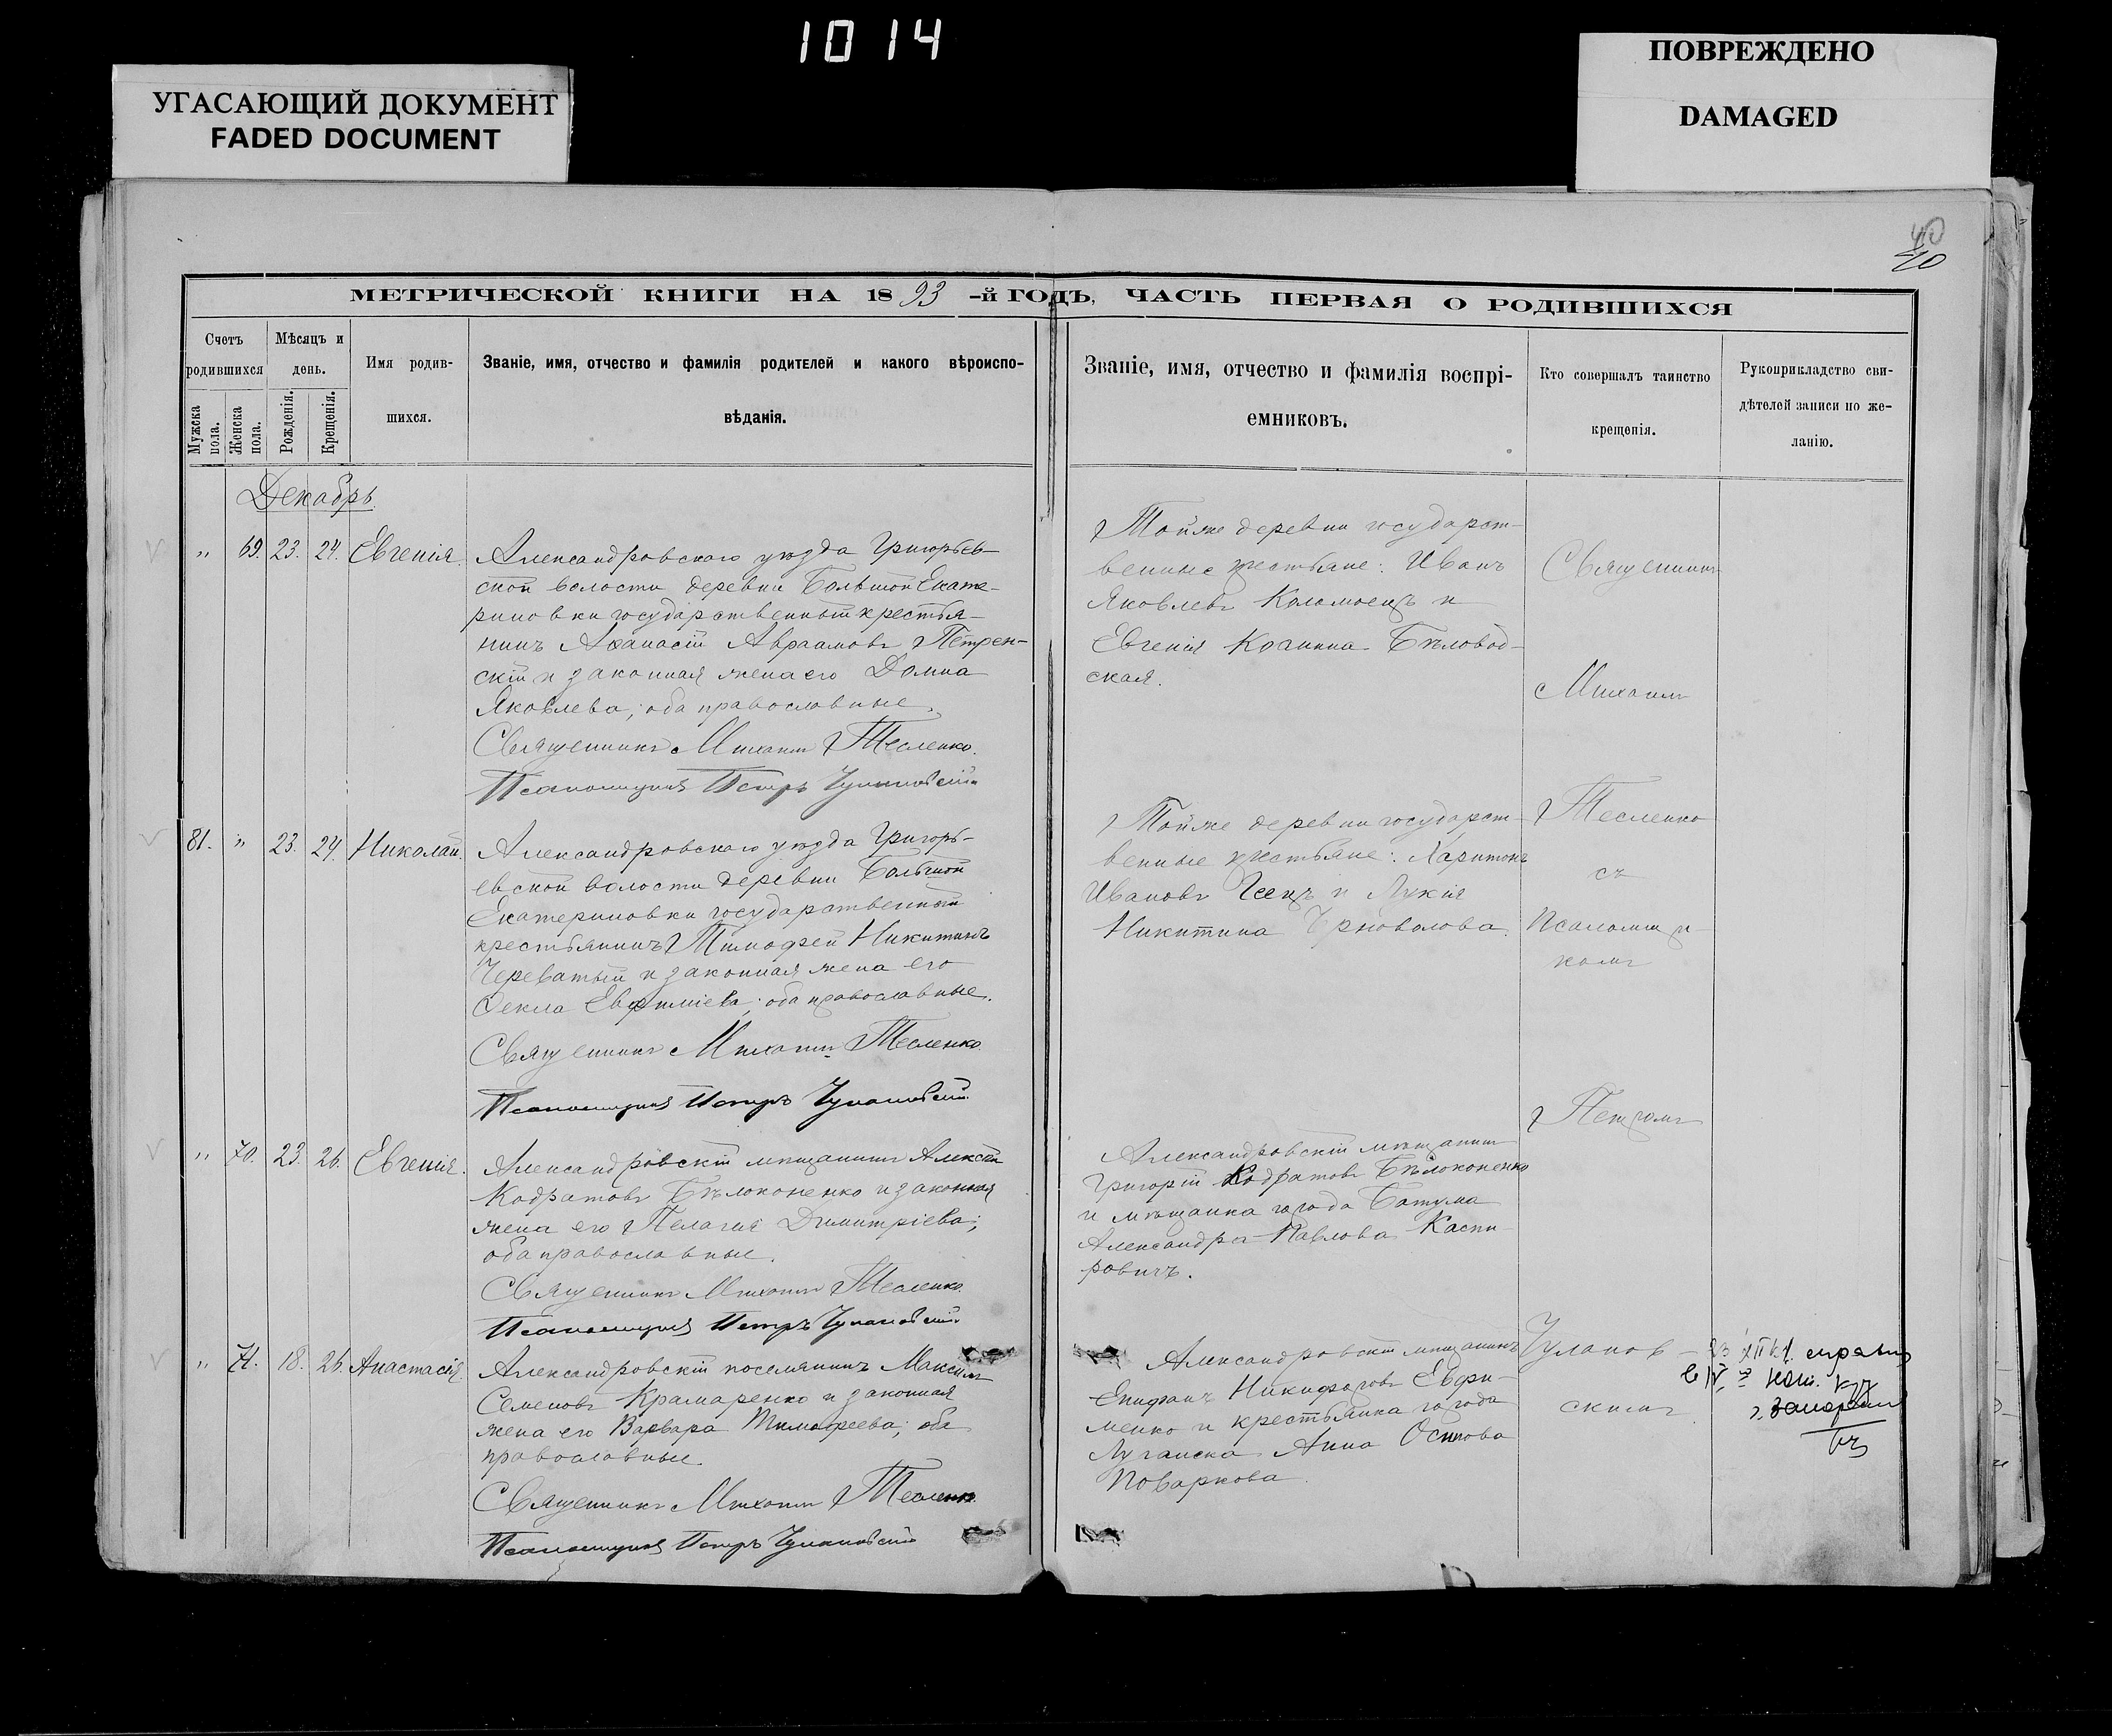 1014
УГАСАЮЩИЙ ДОКУМЕНТ
FADED DOCUMENT
ПОВРЕЖДЕНО
DAMAGED
40
40
МЕТРИЧЕСКОЙ КНИГИ НА 1893-й ГОДЪ, ЧАСТЬ ПЕРВАЯ О РОДИВШИХСЯ
Счетъ родившихся
Мужска пола.
Женска пола.
Мѣсяцъ и день.
Рожденія.
Крещенія.
Имя родив-
шихся.
Званіе, имя, отчество и фамилія родителей и какого вѣроиспо-
вѣданія.
Званіе, имя, отчество и фамилія воспрі-
емниковъ.
Кто совершалъ таинство
крещенія.
Рукоприкладство сви-
дѣтелей записи по же-
ланію.
Декабрь
„ 69. 23. 24. Евгенія.
Александровскаго уѣзда Григорьев-
ской волости деревни Большой Екате-
риновки государственный крестья-
нинъ Аѳанасій Авраамовъ Петрен-
скій и законная жена его Домна
Яковлева; оба православные.
Священникъ Михаилъ Тесленко.
Псаломщикъ Петръ Чулановскій
Тойже деревни государст-
венные крестьяне: Иванъ
Яковлевъ Коломоецъ и
Евгенія
Бѣловод-
ская.
Священникъ
Михаилъ
Тесленко
съ
Псаломщи-
комъ
Петромъ
Чуланов-
скимъ
81. „ 23. 24. Николай.
Александровскаго уѣзда Григорь-
евской волости деревни Большой
Екатериновки государственный
крестьянинъ Тимофей Никитинъ
Череватый и законная жена его
Ѳекла Евфиміева; оба православные.
Священникъ Михаилъ Тесленко
Псаломщикъ Петръ Чулановскій
Тойже деревни государст-
венные крестьяне: Харитонъ
Ивановъ и Лукія
Никитина
„ 70. 23. 26. Евгенія.
Александровскій мѣщанинъ Алексѣй
Кодратовъ Бѣлоконенко и законная
жена его Пелагія Димитріева;
оба православные.
Священникъ Михаилъ Тесленко.
Псаломщикъ Петръ Чулановскій
Александровскій мѣщанинъ
Григорій Кодратовъ Бѣлоконенко
и мѣщанка города Батума
Александра Павлова Каспи-
ровичъ.
„ 71. 18. 26. Анастасія.
Александровскій поселянинъ Максимъ
Семеновъ Крамаренко и законная
жена его Варвара Тимофеева; оба
православные.
Священникъ Михаилъ Тесленко
Псаломщикъ Петръ Чулановскій
Александровскій мѣщанинъ
Епифанъ Никифоровъ Евфи-
менко и крестьянка города
Луганска Анна Осипова
Поваркова.